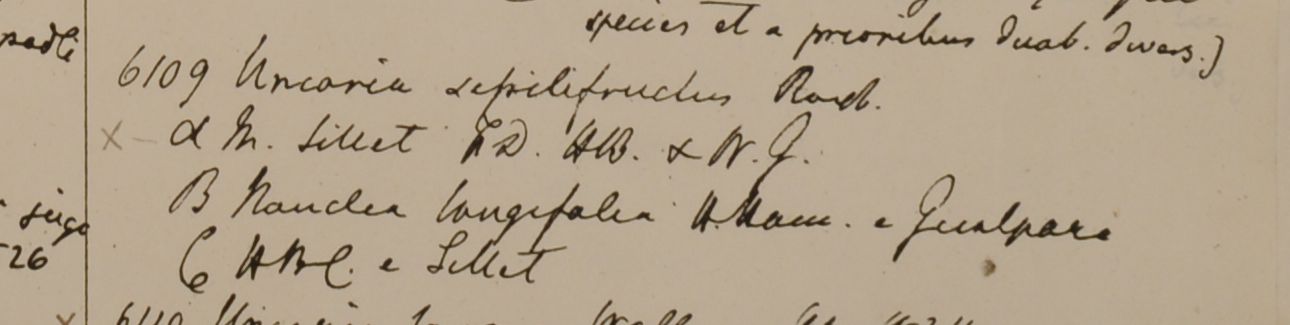 species et a prioribus duab. divers.)
6109 Uncaria sessilifructus Roxb.
X – α M. Sillet F.D. HB. & W.G.
B Nauclea longifolia H.Ham. e Gualpara
C HBC. e Sillet
26
6110 Uncaria Wall